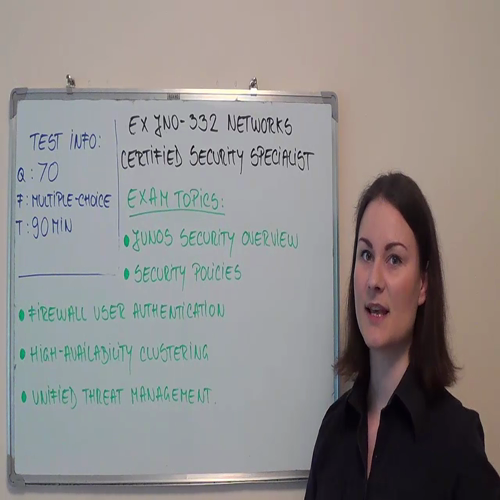 TEST INFO:
Q: 70
F: MULTIPLE-CHOICE
T: 90 MIN
EX JN0-332 NETWORKS
CERTIFIED SECURITY SPECIALIST
EXAM TOPICS:
• JUNOS SECURITY OVERVIEW
• SECURITY POLICIES
• FIREWALL USER AUTHENTICATION
• HIGH-AVAILABILITY CLUSTERING
• UNIFIED THREAT MANAGEMENT.